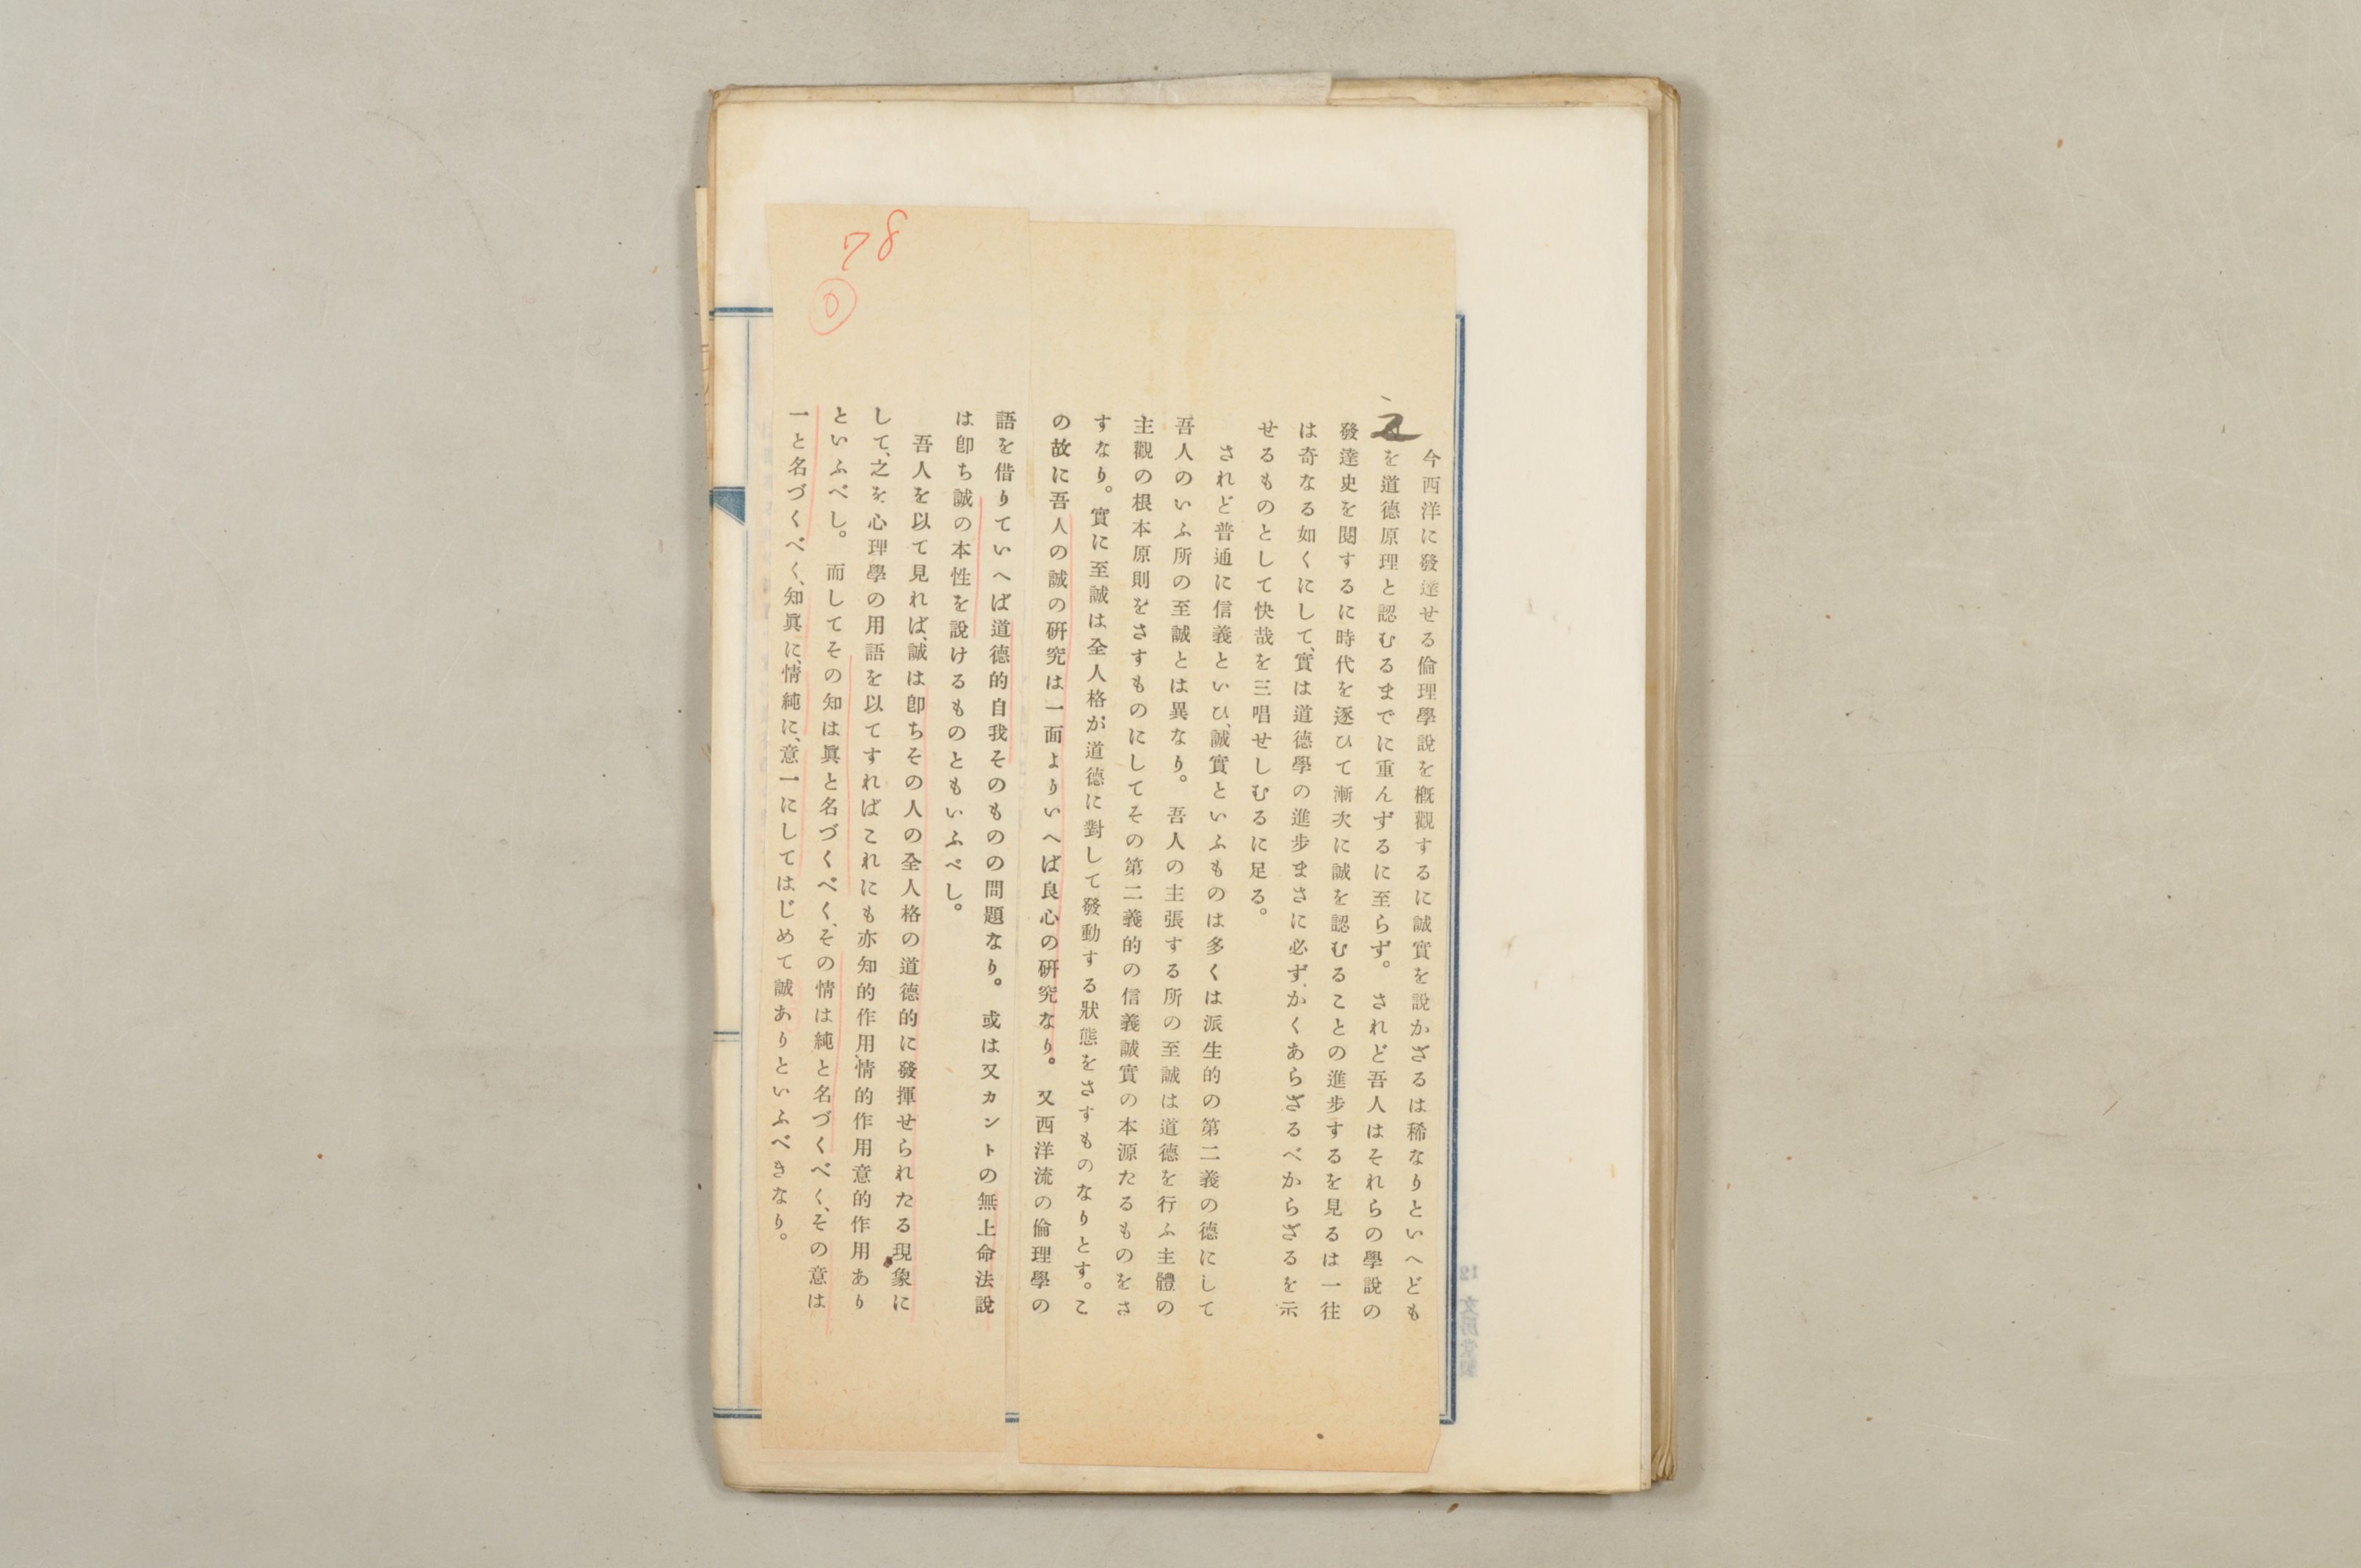 今西洋に發達せる倫理學說を槪觀するに誠實を說かざるは稀なりといへども
之を道德原理と認むるまでに重んずるに至らず。されど吾人はそれらの學說の
發達史を閱するに時代を逐ひて漸次に誠を認むることの進步するを見るは一往
は奇なる如くにして、實は道德學の進步まさに必ずかくあらざるべからざるを示
せるものとして快哉を三唱せしむるに足る。
されど普通に信義といひ、誠實といふものは多くは派生的の第二義の德にして
吾人のいふ所の至誠とは異なり。吾人の主張する所の至誠は道德を行ふ主體の
主觀の根本原則をさすものにしてその第二義的の信義誠實の本源たるものをさ
すなり。實に至誠は全人格が道德に對して發動する狀態をさすものなりとす。こ
の故に吾人の誠の硏究は一面よりいへば良心の硏究なり。又西洋流の倫理學の
語を借りていへば道德的自我そのものの問題なり。或は又カントの無上命法說
は卽ち誠の本性を說けるものともいふべし。
吾人を以て見れば、誠は卽ちその人の全人格の道德的に發揮せられたる現象に
して、之を心理學の用語を以てすればこれにも亦知的作用、情的作用意的作用あり
といふべし。而してその知は眞と名づくべく、その情は純と名づくべく、その意は
一と名づくべく、知眞に、情純に、意一にしてはじめて誠ありといふべきなり。
78
0
12
文房堂製